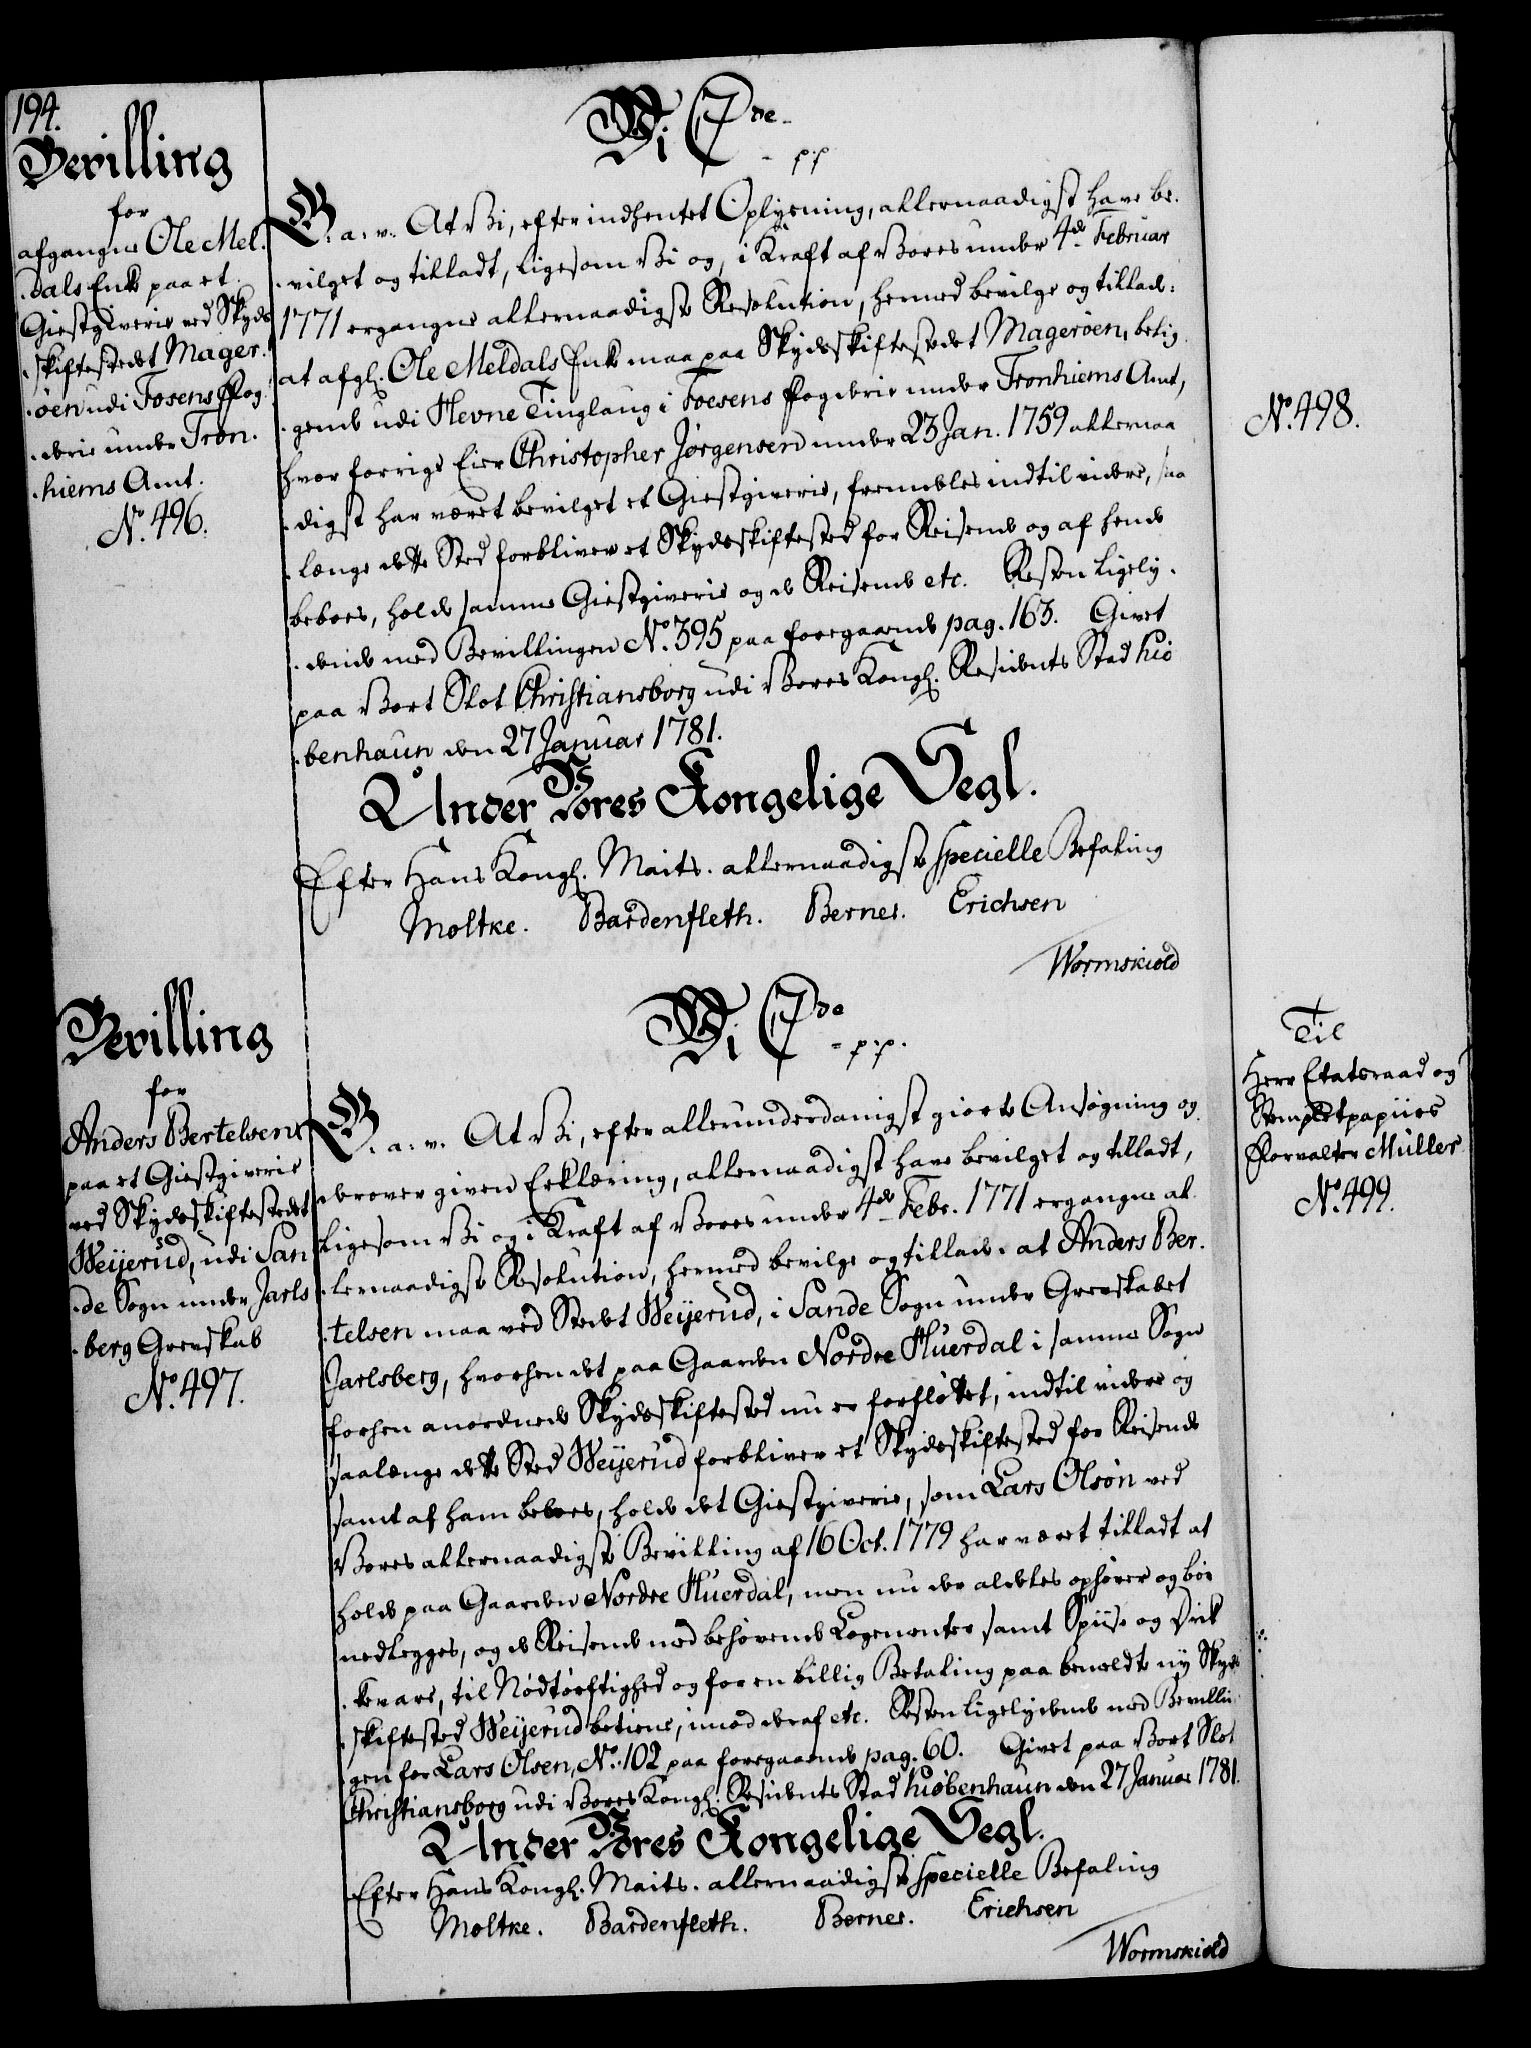 194.
Bevilling
for
afgangne Ole Mel-
-dals Enke paa et
Giestgiverie ved Skyds
-skiftestedet Mager-
-öen udi Fosens Fog-
-derie under Tron-
-hiems Amt.
No. 496.
Vi C 7de
p.p.
G. a. v. At Vi, efter indhentet Oplysning, allernaadigst have be-
-vilget og tilladt, ligesom Vi og, i Kraft af Vores under 4de Februar
1771 ergangne allernaadigste Resolution, hermed bevilge og tillade:
at afgl. Ole Meldals Enke maa paa Skydsskiftestedet Mageröen, belig-
-gende udi Hevne Tinglaug i Foesens Fogderie under Tronhiems Amt,
hvor forrige Eier Christopher Jørgensen under 23 Jan. 1759 allernaa
-digst har været bevilget et Giestgiverie, fremdeles indtil videre, saa
-længe dette Sted forbliver et Skydsskiftested for Reisende og af hende
beboes, holde samme Giestgiverie og de Reisende etc. Resten ligely-
-dende med Bevillingen No. 395 paa foregaaende pag. 163. Givet
paa Vort Slot Christiansborg udi Vores Kongl. Residents Stad Kiö
-benhaun den 27 Januar 1781.
Under Vores Kongelige Segl.
Efter Hans Kongl. Maits. allernaadigste specielle Befaling
Moltke. Bardenfleth. Berner. Erichsen
Wormskiold
Bevilling
for
Anders Bertelsen
paa et Giestgiverie
ved Skydsskiftestedet
Weijerud, udi San
-de Sogn under Jarls
-berg Grevskab
No. 497.
Vi C 7de
p.p.
G. a. v. At Vi, efter allerunderdanigst giorte Ansøgning og
derover given Erklæring, allernaadigst have bevilget og tilladt,
ligesom Vi og i Kraft af Vores under 4de Febr. 1771 ergangne al-
-lernaadigste Resolution, hermed bevilge og tillade: at Anders Ber-
-telsen maa ved Stedet Weijerud, i Sande Sogn under Grevskabet
Jarlsberg, hvorhen det paa Gaarden Nordre Huerdal i samme Sogn
forhen anordnede Skydsskiftested nu er forfløttet, indtil videre og
saalænge dette Sted Weijerud forbliver et Skydsskiftested for Reisende
samt af ham beboes, holde det Giestgiverie, som Lars Olsön ved
Vores allernaadigste Bevilling af 16 Oct. 1779 har været tilladt at
holde paa Gaarden Nordre Huerdal, men nu der aldeles ophører og bör
nedlegges, og de Reisende med behøvende Logementer samt Spiise og Drik
-kevare, til Nödtörftighed og for en billig Betaling paa bemeldte ny Skyds
-skiftested Weijerud betiene, imod deraf etc. Resten ligelydende med Bevillin
-gen for Lars Olsen, No. 102 paa foregaaende pag. 60. Givet paa Vort Slot
Christiansborg udi Vores Kongl. Residents Stad Kiöbenhaun den 27 Januar 1781.
Under Vores Kongelige Segl.
Efter Hans Kongl. Maits. allernaadigste specielle Befaling
Moltke. Bardenfleth. Berner. Erichsen
Wormskiold
No. 498.
Til
Herr Etatsraad og
Stemplet papiirs
Forvalter Müller
No. 499.